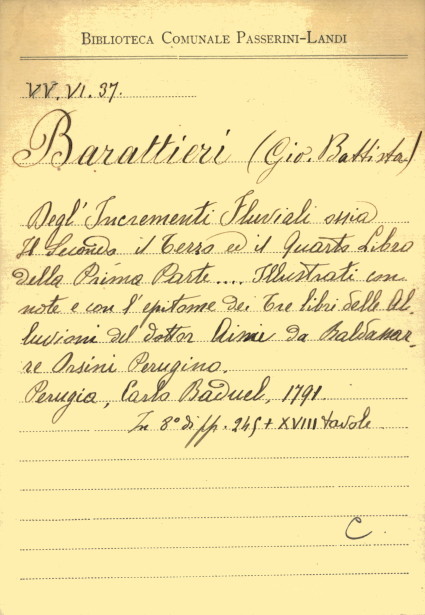 BIBLIOTECA COMUNALE PASSERINI-LANDI
VV. VI. 37.
Barattieri (Gio. Battista)
Degl' Incrementi Fluviali ossia
Il Secondo il Terzo ed il Quarto Libro
della Prima Parte .... Illustrati con
note e con l'epitome dei tre libri delle Al-
luvioni del dottor Aimi da Baldassar-
re Orsini Perugino.
Perugia, Carlo Baduel, 1791.
In 8° di pp. 245 + XVIII tavole.
C.